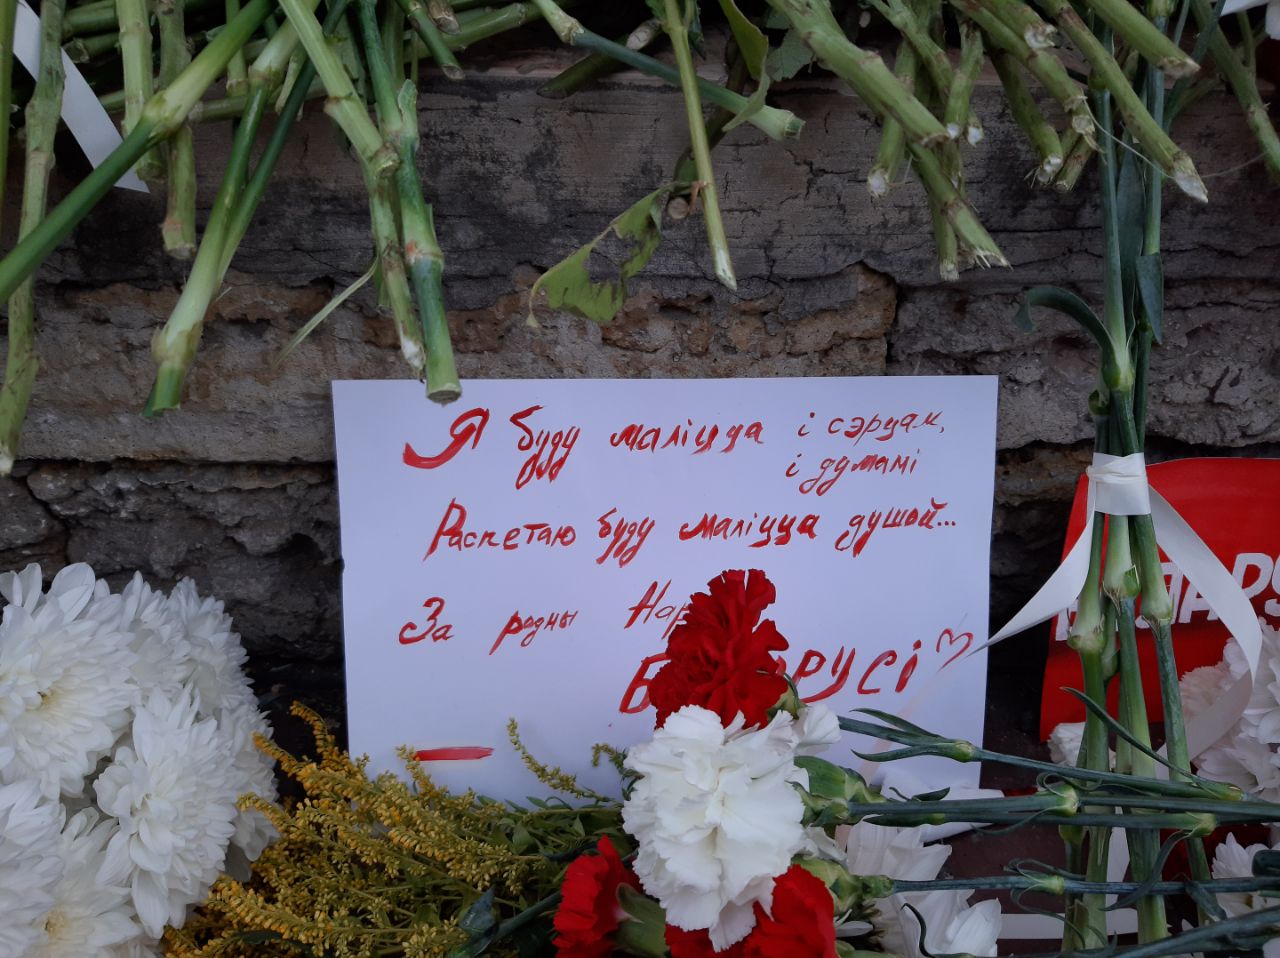 Я буду маліцца і сэрцам,
і думамі
Распетаю буду маліцца душой...
За родны Нар
Б русі